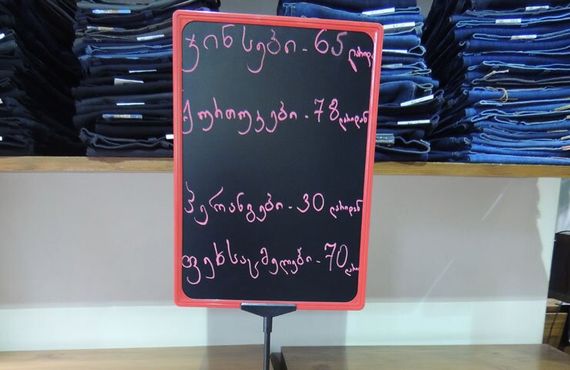 ჯინსები - 65 ლარიდან
ქურთუკები - 78 ლარიდან
პერანგები - 30 ლარიდან
ფეხსაცმელები - 70 ლარი